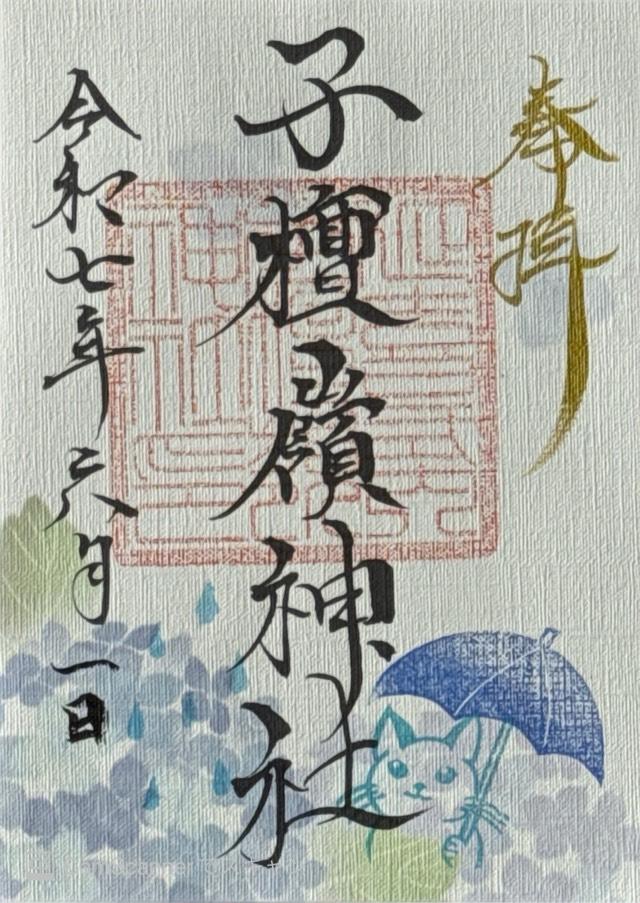 奉拝
子檀嶺神社
令和七年六月一日